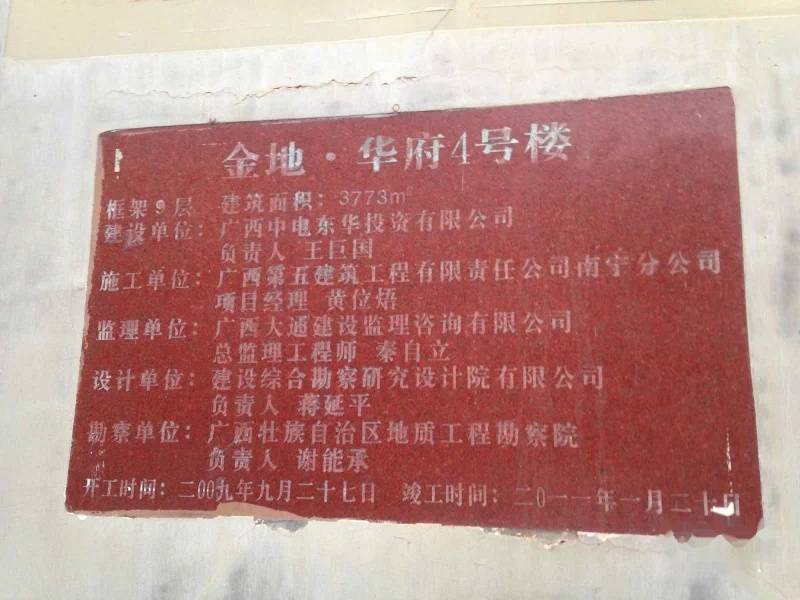 金地·华府4号楼
框架9层 建筑面积：3773m²
建设单位：广西中电东华投资有限公司
负责人 王巨国
施工单位：广西第五建筑工程有限责任公司南宁分公司
项目经理 黄位焐
监理单位：广西大通建设监理咨询有限公司
总监理工程师 秦自立
设计单位：建设综合勘察研究设计院有限公司
负责人 蒋延平
勘察单位：广西壮族自治区地质工程勘察院
负责人 谢能承
开工时间：二00九年九月二十七日 竣工时间：二0一一年一月二十日